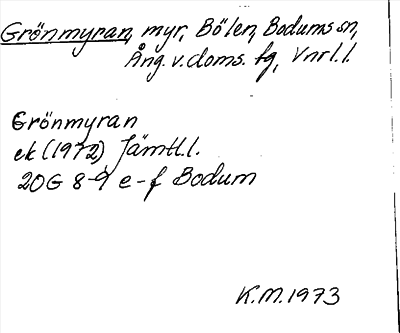 Grönmyran, myr, Bölen, Bodums sn,
Ång. v. doms. fg, Vnrl. l.
Grönmyran
ek (1972) Jämtl. l.
20G 8-9 e-f Bodum
K.M. 1973